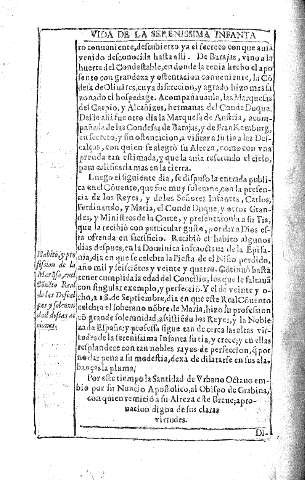 VIDA DE LA SERENISSIMA INFANTA
to conveniente, descubierto ya el secreto con que auia
venido desconocida hasta alli. De Barajas, vino a la
huerta del Condestable, en donde la tenia hecho el apo
sento con grandeza y ostentacion conueniente, la Cõ
desa de Oliuares, cuya discrecion, y agrado hizo mas sa
zonado el hospedage. Acompañauanla, las Marquesas
del Carpio, y Alcañizes, hermanas del Conde Duque.
Desde alli fue otro dia la Marquesa de Austria, acom-
pañada de las Condesas de Barajas, y de Franqemburg,
en secreto, y sin ostentacion, a visitar a su tia a las Des-
calças, con quien se alegrò su Alteza, como con vna
prenda tan estimada, y que la auia
para en la tierra.
Luego el siguiente dia, se dispuso la entrada publi
ca en el Cõuento, que fue muy solemne, con la presen-
cia de los Reyes, y de los Señores Infantes, Carlos,
Fernando, y Maria, el Conde Duque, y otros Gran-
des, y Ministros de la Corte, y presentaronla a su Tia,
que la recibiò con particular gusto, por dar a Dios es-
ta ofrenda en sacrificio. Recibiò el habito algunos
dias despues, en la Dominica infraoctaua de la Epifa-
nia, dia en que se celebra la Fiesta de el Niño perdido,
año mil y seiscientos y veinte y quatro. Continuò hasta
tener cumplida la edad del Concilio, los que le faltauã
con singular exemplo, y perfecciõ. Y el de veinte y o-
cho, a 18. de Septiembre, dia en que este Real Cõuento
celebra el soberano nõbre de Maria, hizo su profession
cõ grande solemnidad, assistiẽdo los Reyes, y la Noble
za de España; y professa sigue tan de cerca las altas vir-
tudes de la serenissima Infanta su tia, y crece, y en ellas
resplandece con tan nobles rayos de perfeccion, q̃ por
no dar pena a su modestia, dexa de dilatarse en sus ala-
banças la pluma.
Por este tiempo la Santidad de Vrbano Octauo em-
bio por su Nuncio Apostolico, al Obispo de Grabina,
con quien remitiò a su Alteza este Breue, apro-
uacion digna de sus claras
virtudes.
Di-
Habito, y pro
fession de la
Marquesa, en el
Cõuẽto Real
de las Descal
ças